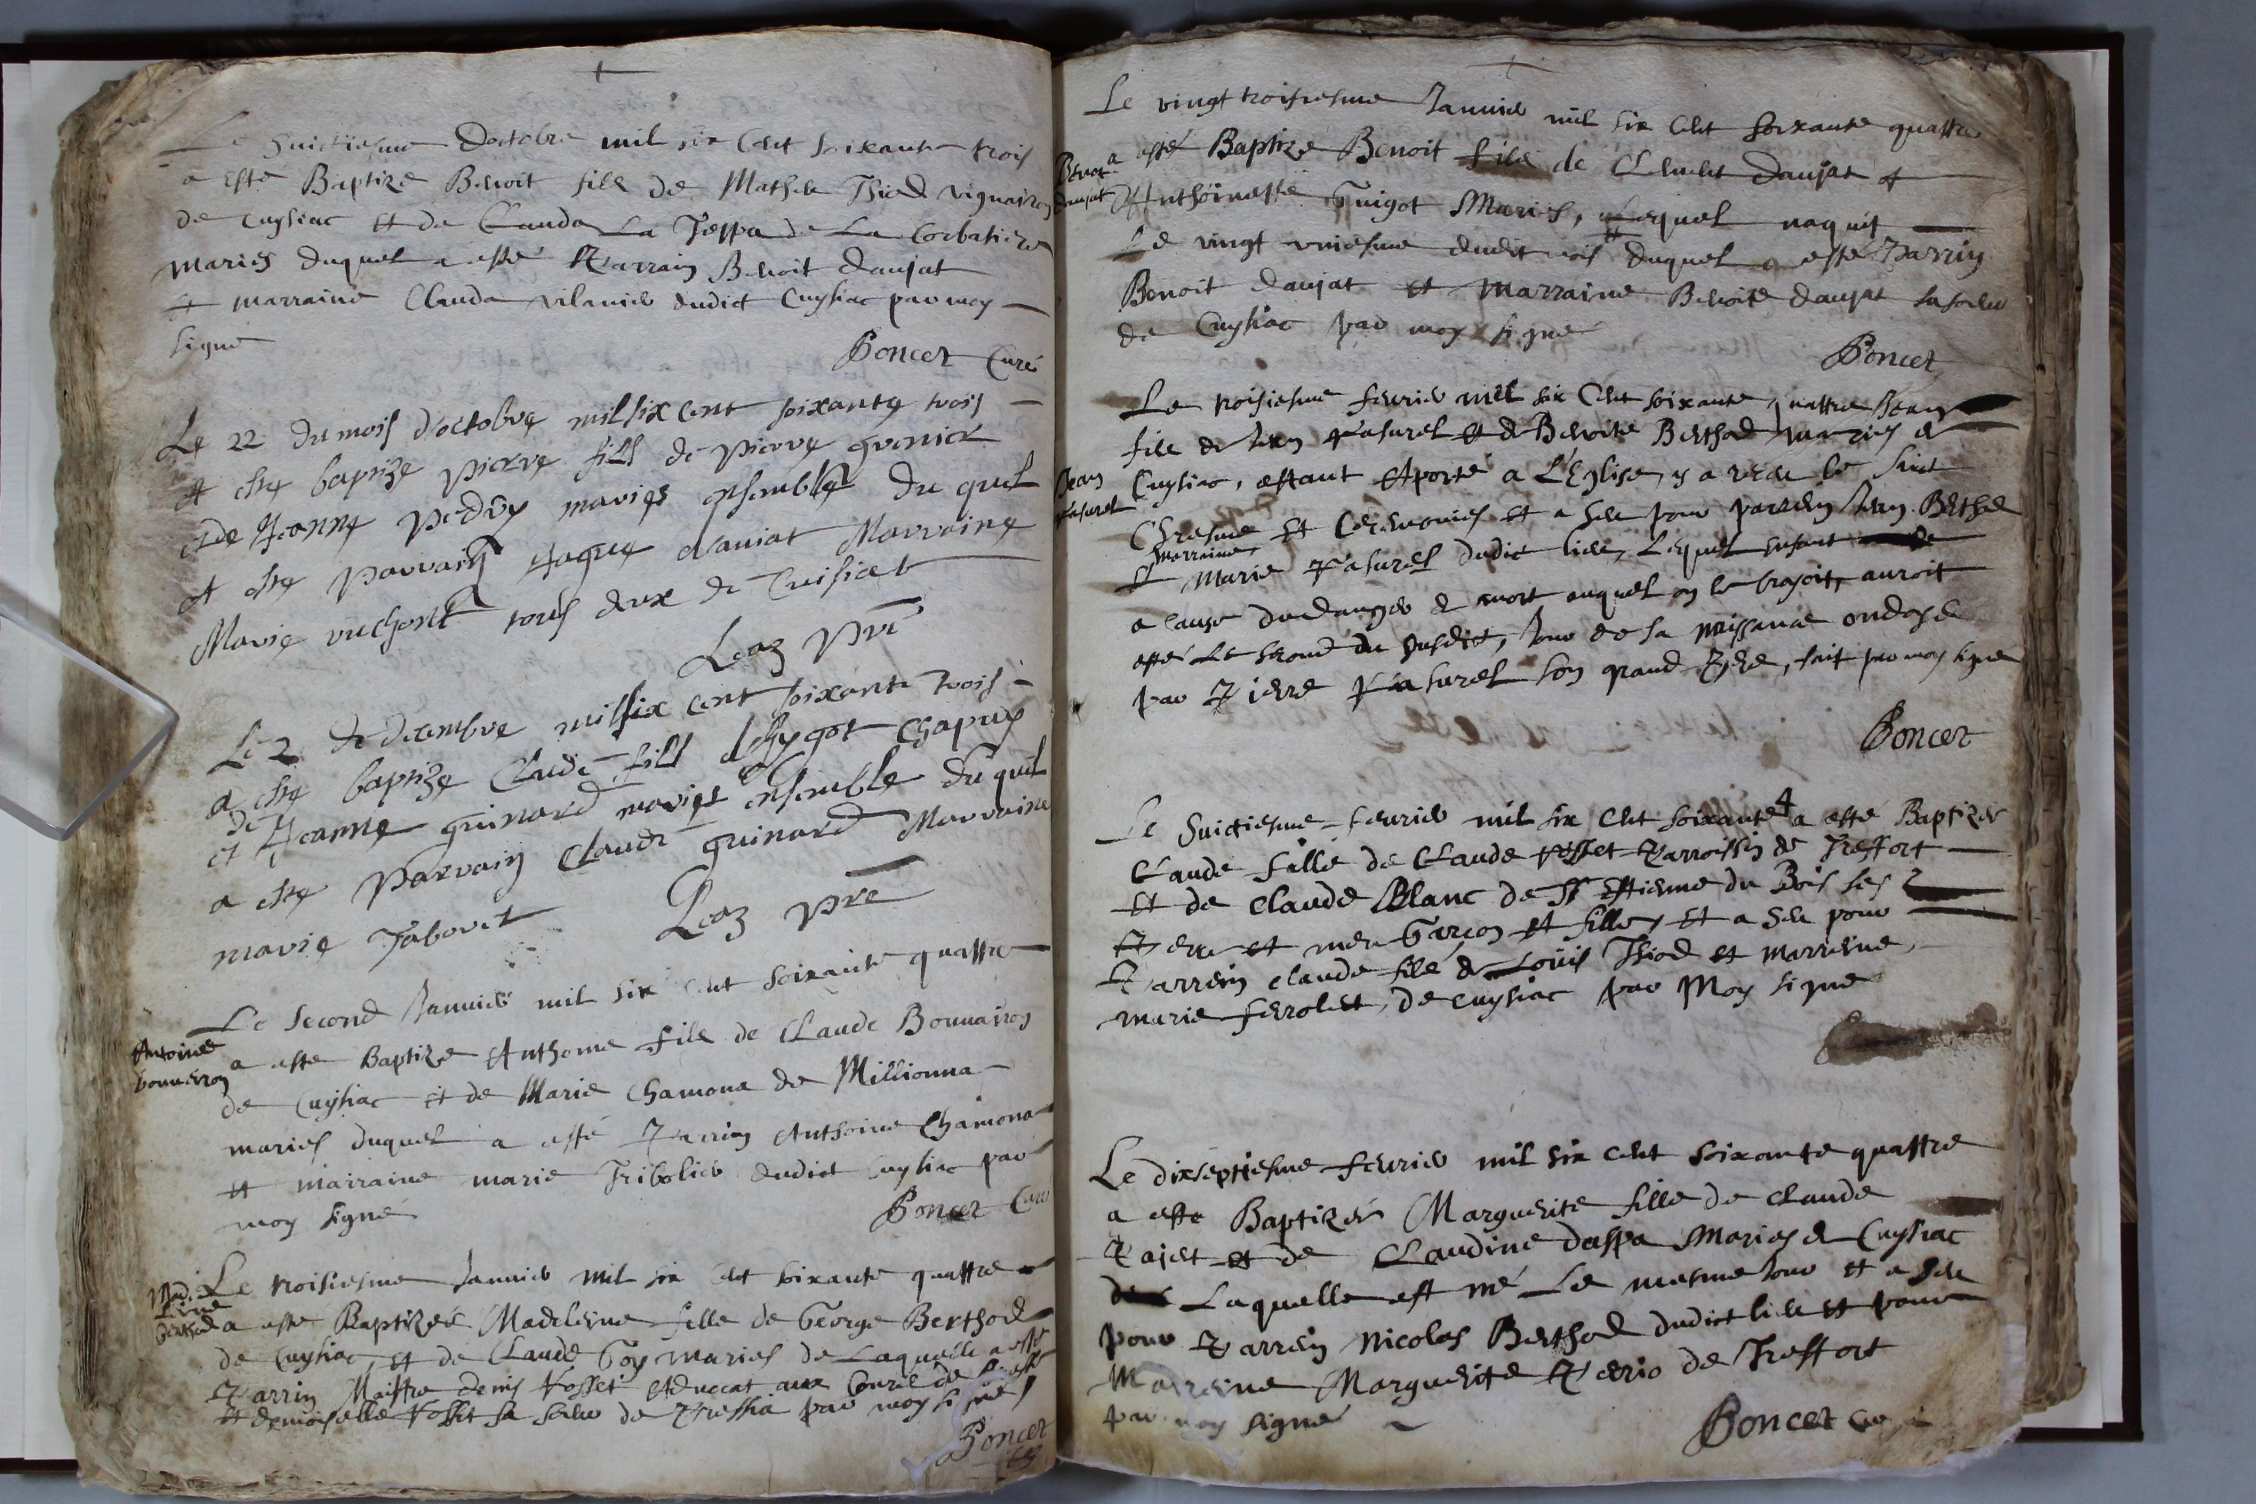 Le huictiesme doctobre mil six Cent soixante trois
a esté Baptizé Benoit filz de Mathe Thiod vigneron
de Cuysiac et de Clauda La Teppa de La Corbatiere
mariés duquel a esté Parrain Benoit daujat
et marraine Clauda vilanie dudict Cuysiac par moy
signé
Poncet Curé
Le 22 du mois d'octobre mil six cent soixante trois
A este baptize pierre fils de pierre
et de Jeanne mariés ensemble du quel
A este parrain daniat Marraine
Marie tous deux de Cuisiat
Leaz pre
Le 2 de decembre mil six cent soixante trois
a este baptize Claude fils de hygot Chapuy
et de Jeanne guinard mariés ensemble du quel
a este parrain Claude guinard Marraine
marie Taboret Leaz pre
Le second Janvier mil six cent soixante quattre
Antoine
bonneron
a esté Baptizé Anthoine filz de Claude Bonnairon
de Cuysiac et de Marie Chamona de Millionna
mariés duquel a esté Parrin Anthoine Chamona
et marraine marie Tribolier dudict Cuysiac par
moy signé
Poncet Curé
Le troisiesme Janvier mil six Cent soixante quattre
Mad.
leine
Berthod
a esté Baptizée Madeleine fille de George Berthod
de Cuysiac, et de Claude Goy mariés de Laquelle a esté
Parrin Maistre denis Vosset Advocat aux
et demoiselle Vosset sa soeur de par moy signé
Poncet
Le vingt troisiesme Janvier mil six Cent soixante quattre
Benoit
daujat
a esté Baptizé Benoit filz de Clement daujat et
Anthoinette Guigot Mariés, Lequel naquit
Le vingt uniesme dudit mois duquel a esté Parrin
Benoit daujat et marraine Benoite daujat sa soeur
de Cuysiac par moy signé
Poncet
Le troisiesme fevrier mil six Cent soixante quattre Jean
filz de Jean Pasurel et de Benoite Berthod mariés de
Jean
Pasurel
Cuysiac, estant Aporté a L'Eglise, y a receu le sainct
Chresme et Ceremonies et a heu pour parrein Jean Berthod
marraine
et Marie Pasurel dudict lieu, Lequel enfant
a cause du danger de mort auquel on le croyoit, auroit
esté Le second du susdict, Jour de sa naissance ondoyé
par Pierre Pasurel son grand Pere, fait par moy signé
Poncet
Le huictiesme fevrier mil six Cent soixante 4 a esté Baptizée
Claude fille de Claude Vosset Parroissin de Treffort
et de Claude Blanc de St Estienne du Bois ses
Pere et mere Garcon et fille, et a heu pour
Parrein Claude filz de Loüis Thiod et marreine
marie ferolet, de Cuysiac par Moy signé
Le dixseptiesme fevrier mil six cent soixante quattre
a esté Baptizée Marguerite fille de Claude
Pajet et de Claudine daspa Mariés de Cuysiac
Laquelle est né Le mesme Jour et a heu
pour Parrein Nicolas Berthod dudict lieu et pour
Marreine Marguerite Perrio de Treffort
par moy signé
Poncet Curé